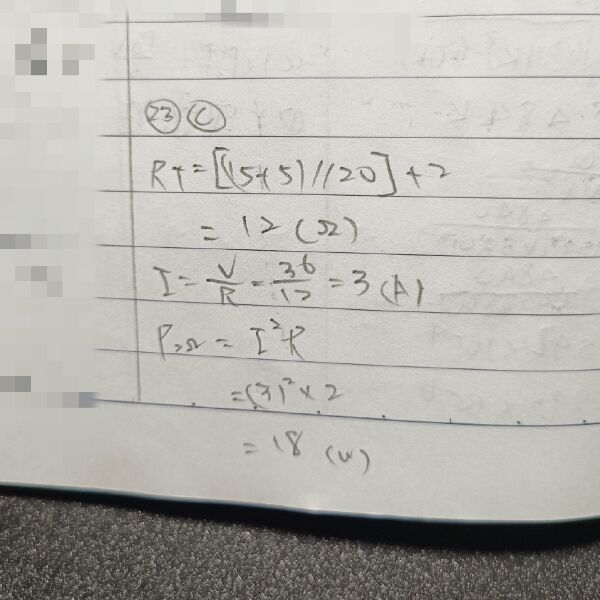 ㉓ Ⓒ
RT = [(15+5)//20] + 2
= 12 (Ω)
I = V/R = 36/12 = 3 (A)
P₂Ω = I²R
= (3)² × 2
= 18 (W)